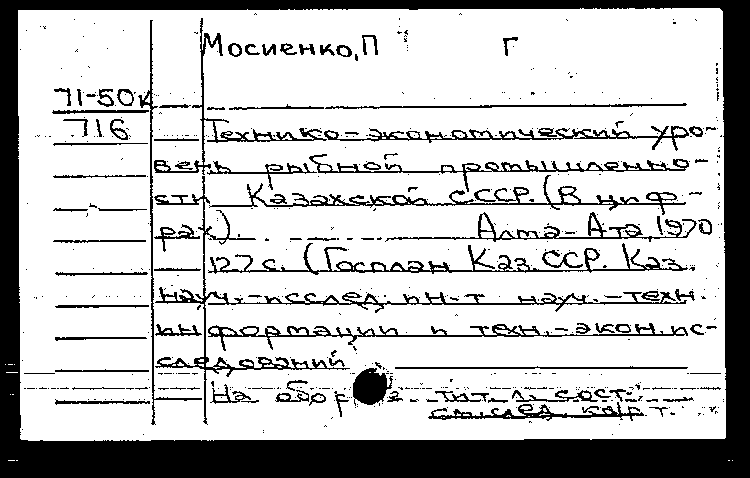 Мосиенко, П Г
71-50к
716 Технико-экономический уро-
вень рыбной промышленно-
сти Казахской ССР. (В циф-
рах). Алма-Ата, 1970
127 с. (Госплан Каз. ССР. Каз.
науч.-исслед. ин-т науч.-техн.
информации и техн.-экон. ис-
следований
На обор е тит. л. сост.:
см. след. карт.